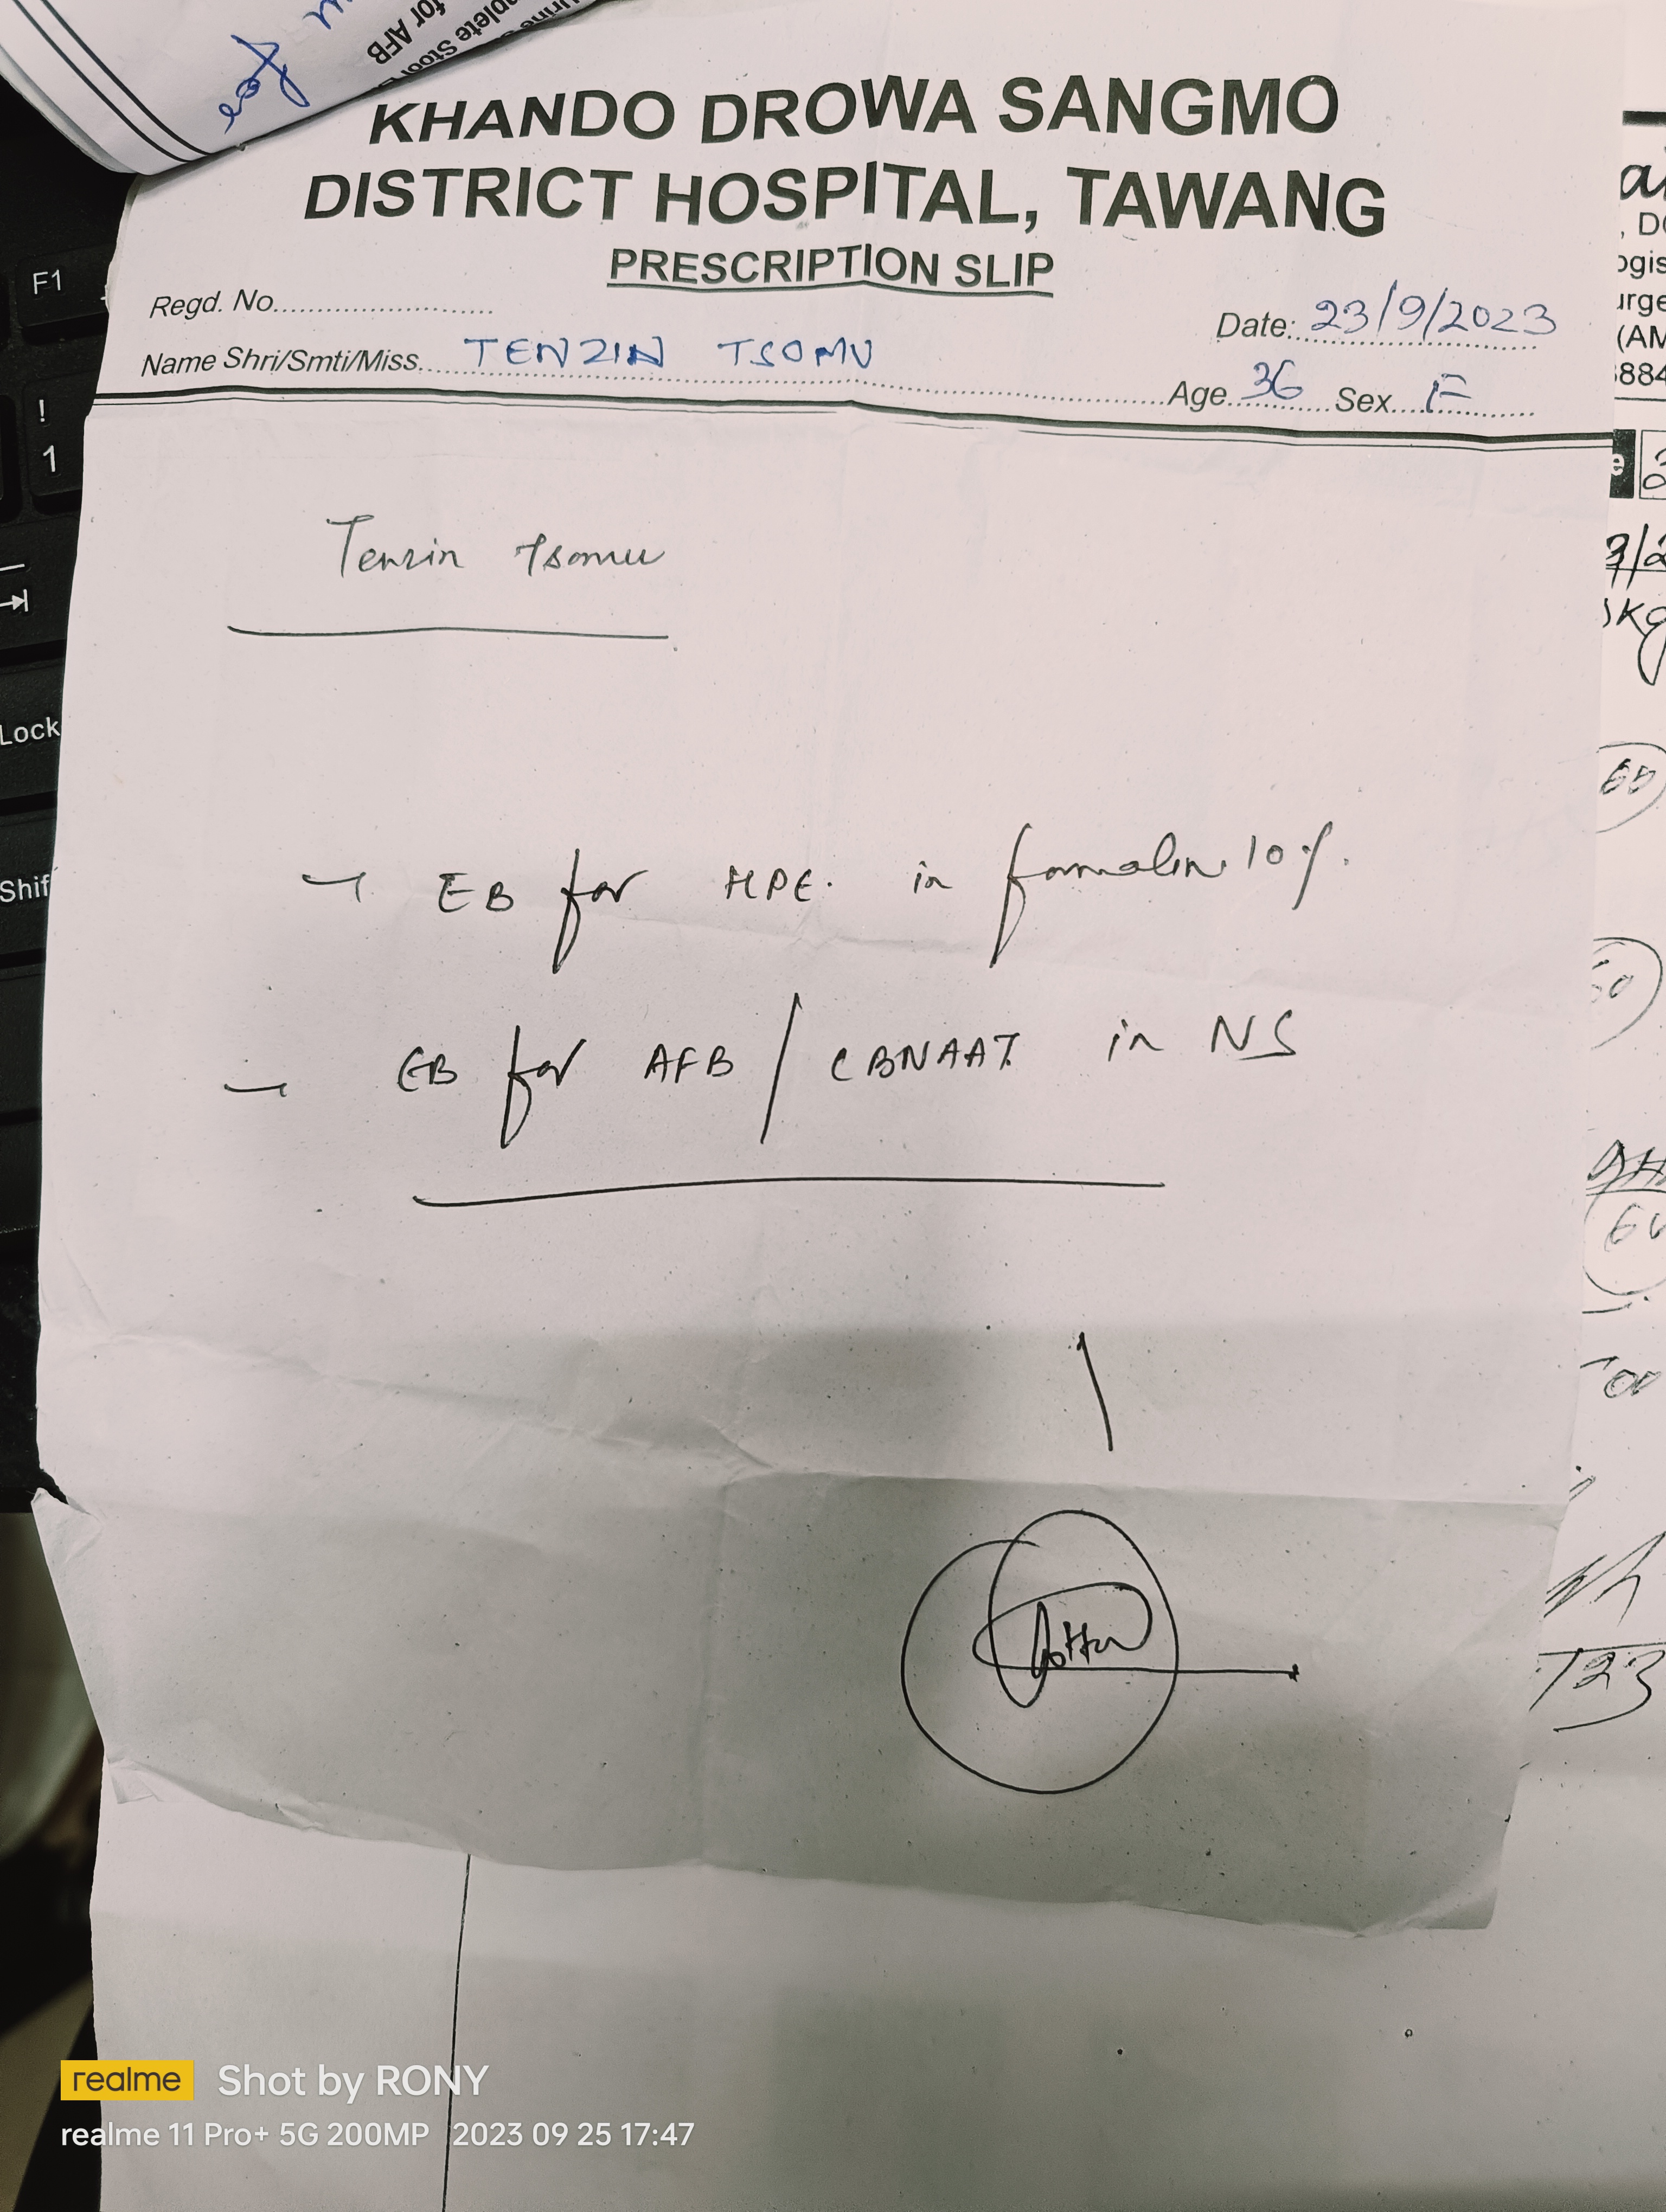 for
for AFB
KHANDO DROWA SANGMO
DISTRICT HOSPITAL, TAWANG
PRESCRIPTION SLIP
Regd. No.
Date: 23/9/2023
Name Shri/Smti/Miss. TENZIN TSOMU
Age 36 Sex F
Tenzin Tsomu
→ EB for HPE. in formalin 10%.
- EB for AFB / CBNAAT in NS
F1
!
1
Lock
Shif
(AM
884
3/2
60
60
T23
realme Shot by RONY
realme 11 Pro+ 5G 200MP 2023 09 25 17:47